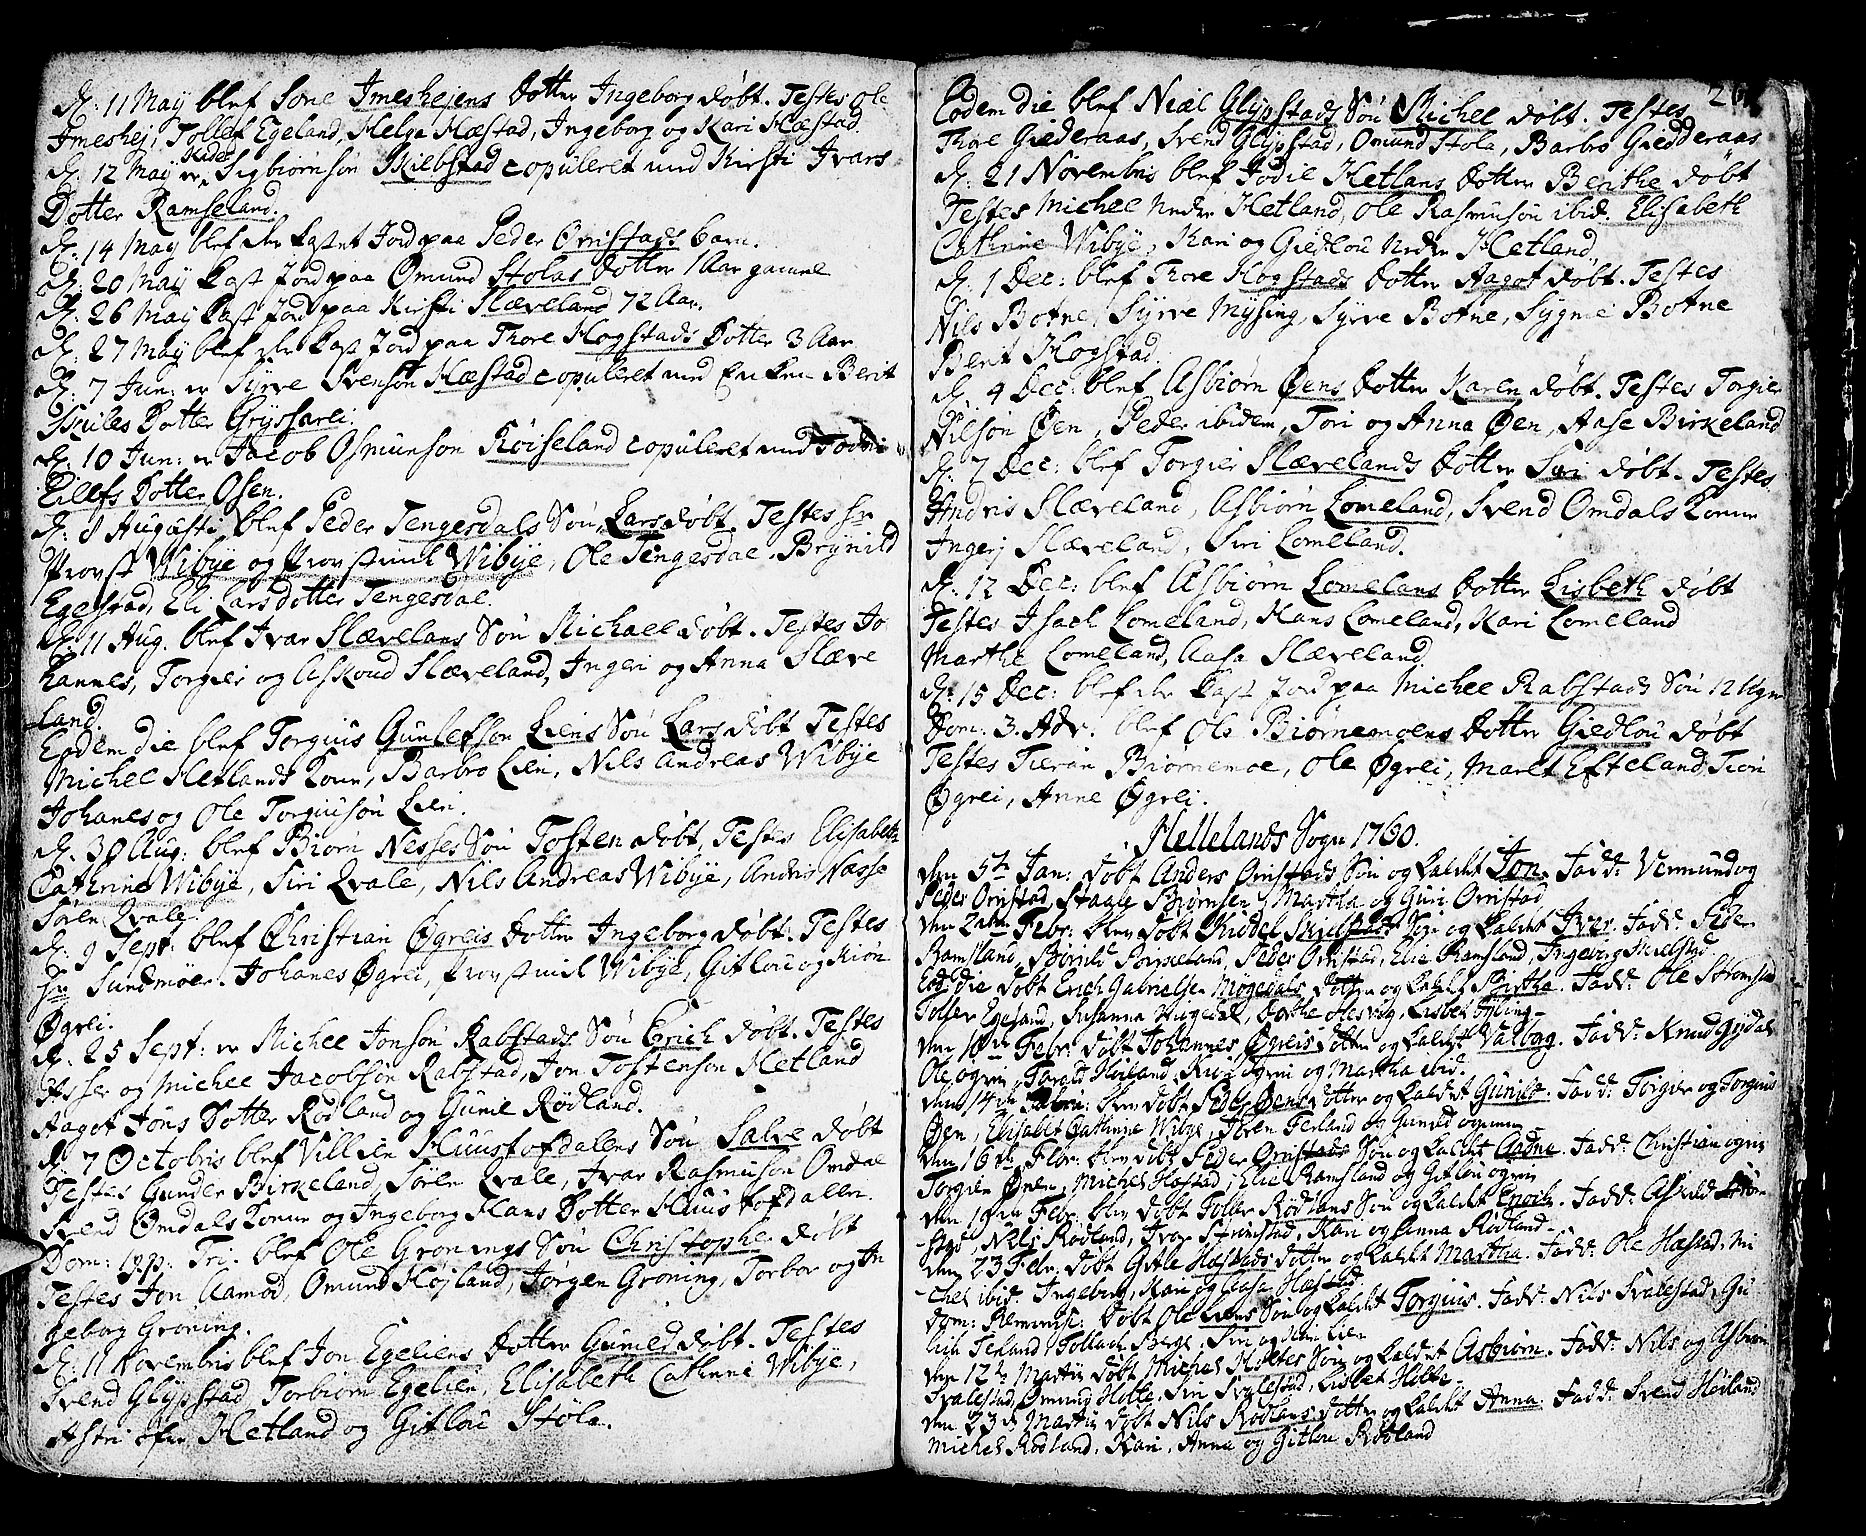 d. 11 May blef Sone Imeshejens Dotter Ingeborg døbt. Testes Ole
Imeshej, Tollef Egeland, Helga Hæstad, Ingeborg og Kari Hæstad.
d. 12 May er Sigbiørnsøn Skiebstad copuleret med Kirsti Ivars
Dotter Ramseland.
d. 14 May blef der kastet Jord paa Peder Ørnstads barn.
d. 20 May kast Jord paa Omund Stolas Dotter 1 Aar gammel
d. 26 May kast Jord paa Kirsti Slæveland 72 Aar.
d. 27 May blef der kast Jord paa Thore Hogstads Dotter 3 Aar
d. 7 Jun: er Syrve Svensøn Hæstad copuleret med Enken Berit
Skules Dotter
d. 10 Jun: er Jacob Osmunsøn Røiseland copuleret med
Eillefs Dotter Osen.
d. Augusti blef Peder Tengesdals Søn Lars døbt. Testes Hr
Provst Wibye og Wibye, Ole Tengesdal. Brynild
Egestad, Eli Larsdotter Tengesdal.
d. 11 Aug. blef Ivar Slævelans Søn Michael døbt. Testes Jo
hannes, Torgier og Askoud Slæveland, Ingeri og Anna Slæve
land.
Eodem die blef Torgius Gunlefsøn Liens Søn Lars døbt Testes
Michel Hetlands Kone, Barbro Lien, Nils Andreas Wibye
Johanes og Ole Torgiusøn Lien.
d. 30 Aug: blef Biørn Nesses Søn Tosten døbt, Testes Elisabeth
Cathrine Wibye, Siri Qvale, Nils Andreas Wibye, Andris Nasse
Søren Qvale.
d. 9 Sept: blef Christian Øgreis Dotter Ingeborg døbt. Testes
Hr Sundmøer. Johanes Øgrei, Wibye, Gitlou og
Øgrei.
d. 25 Sept: er Michel Jonsøn Rabstads Søn Erich døbt. Testes
Asser og Michel Jacobsøn Rabstad, Jon Tostensøn Hetland
Aagot Jons Dotter Rødland og Gunil Rødland.
d. 7 Octobris blef Villien Huustofdalens Søn Salve døbt
Testes Gunder Birkeland, Søren Qvale, Ivar Rasmusøn Omdal
Svend Omdals Kone og Ingeborg Hans Dotter Huustofdalen.
Dom: Tri: blef Ole Gronings Søn Christopher døbt
Testes Jon Aamod, Omund Højland, Jørgen Groning, Torbor og In
geborg Groning.
d. 11 Novembris blef Jon Egeliens Dotter Gunild døbt. Testes
Svend Glypstad Torbiørn Egelien, Elisabeth Cathrine Wibye,
Astri Hetland og Gitlou Støla.
Eodem die blef Niæl Glypstads Søn Michel døbt. Testes
Thore Giederaas, Svend Glypstad, Omund Stola, Barbro Giedderaas
d. 21 Novembris blef Hetlans Dotter Berthe døbt
Testes Michel Nedre Hetland, Ole Rasmusøn ibid. Elisabeth
Cathrine Wibye, Kari og Giedlou Nedre Hetland,
d. 1 Dec: blef Thore Hogstads Dotter Aagot døbt. Testes
Nils Botne, Syrve Mysing, Syrve Botne, Sygnie Botne
Berit Hogstad.
d. 4 Dec: blef Asbiørn Øens Dotter Karen døbt. Testes Torgier
Nilsøn Øen, Peder ibidem, Tori og Anna Øen, Aase Birkeland
d. 7 Dec: blef Torgier Slævelands Dotter Siri døbt. Testes
Andris Slæveland, Asbiørn Lomeland, Svend Omdals Kone
Ingerj Slæveland, Siri Lomeland.
d. 12 Dec: blef Asbiørn Lomelans Dotter Lisbeth døbt
Testes Isach Lomeland, Hans Lomeland, Kari Lomeland
Marthe Lomeland, Aasa Slæveland
d. 15 Dec: blef der kast Jord paa Michel Rabstads Søn 12 Uger
Dom: 3. Adv: blef Ole Biørnemoens Dotter Giedlou døbt
Testes Tieran Biørnemoe, Ole Øgrei, Maret Efteland, Tiøri
Øgrei, Anne Øgrei.
Hellelands Sogn 1760.
den 5te Jan: døbt Anders Ørnstads Søn og kaldt Jon. Fadd: Vermund og
Peder Ørnstad, Staale Biørnsen, Martha og Guri Ørnstad
den 2den Febr: blev døbt Skielstads Søn og kaldt Iver. Fadd: Peder
Ramsland, Peder Ørnstad, Elie Ramsland, Ingeborg Skielstad
Eod: die døbt Erich Gabrielsen Møgedals Dotter og kaldt Birthe. Fadd: Ole
Toller Egeland, Susanna Møgedal, Lisbet
den 10de Febr: døbt Johannes Øgreis Dotter og kaldt Valborg. Fadd: Knud Gydal
Ole ogrei, Tarald Høiland, ogrei og Martha ibid.
den 14de Febr: blev døbt Peder Øens Dotter og kaldt Gunild. Fadd: Torger og Torgius
Øen, Elisabet Cathrine Wibye, Søren Terland og Gunild
den 16de Febr: blev døbt Peder Ørnstads Søn og kaldt Aadne. Fadd: Christian ogrei
Torgier Øen, Michel Hæstad, Elie Ramsland og Gitlou ogrei
den 19de Febr: blev døbt Toller Rødlans Søn og kaldt Enoch. Fadd:
Nils Rødland, Iver Kari og Anna Rødland
den 23 Febr: døbt Gitle Hæstads Dotter og kaldt Martha. Fadd: Ole Hæstad, Mi
chel ibid. Ingeborg, Kari og Aasa Hæstad
Dom: Reminisc: døbt Ole Liens Søn og kaldt Torgius. Fadd: Nils Svalestad, Gu
Terland Siri og Lien
den 12te Martii døbt Michel Holtes Søn og kaldt Asbiørn. Fadd: Nils og Asbiørn
Svalestad, Omund Holte, Siri Svalestad, Lisbet Holte.
den 23de Martii døbt Nils Rødlans Dotter og kaldt Anna. Fadd: Svend Høiland
Michel Rødland, Kari, Anna og Gitlou Rødland